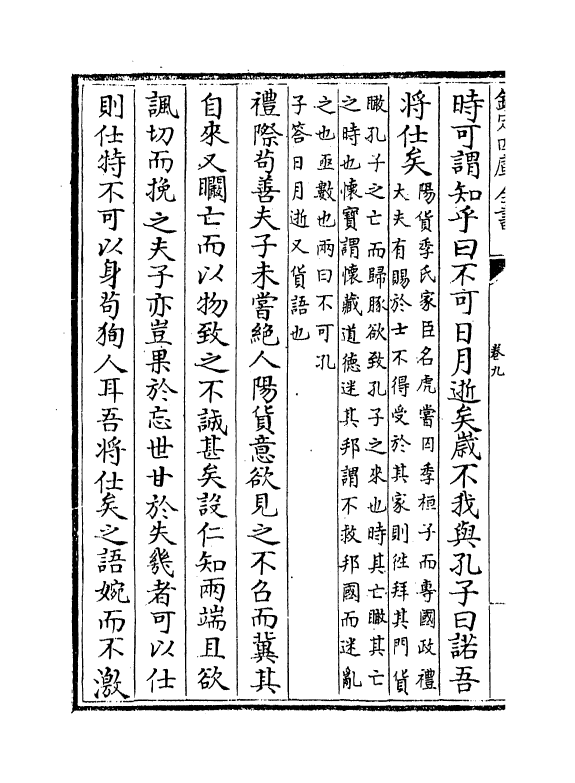 欽定四庫全書
卷九
時可謂知乎曰不可日月逝矣歲不我與孔子曰諾吾
將仕矣
陽貨季氏家臣名虎嘗囚季桓子而專國政禮
大夫有賜於士不得受於其家則徃拜其門貨
瞰孔子之亡而歸豚欲致孔子之來也時其亡瞰其亡
之時也懷寶謂懷藏道德迷其邦謂不救邦國而迷亂
之也亟數也兩曰不可孔
子答日月逝又貨語也
禮際茍善夫子未嘗絶人陽貨意欲見之不召而冀其
自來又瞷亡而以物致之不誠甚矣設仁知兩端且欲
諷切而挽之夫子亦豈果於忘世甘於失幾者可以仕
則仕特不可以身茍狥人耳吾將仕矣之語婉而不激